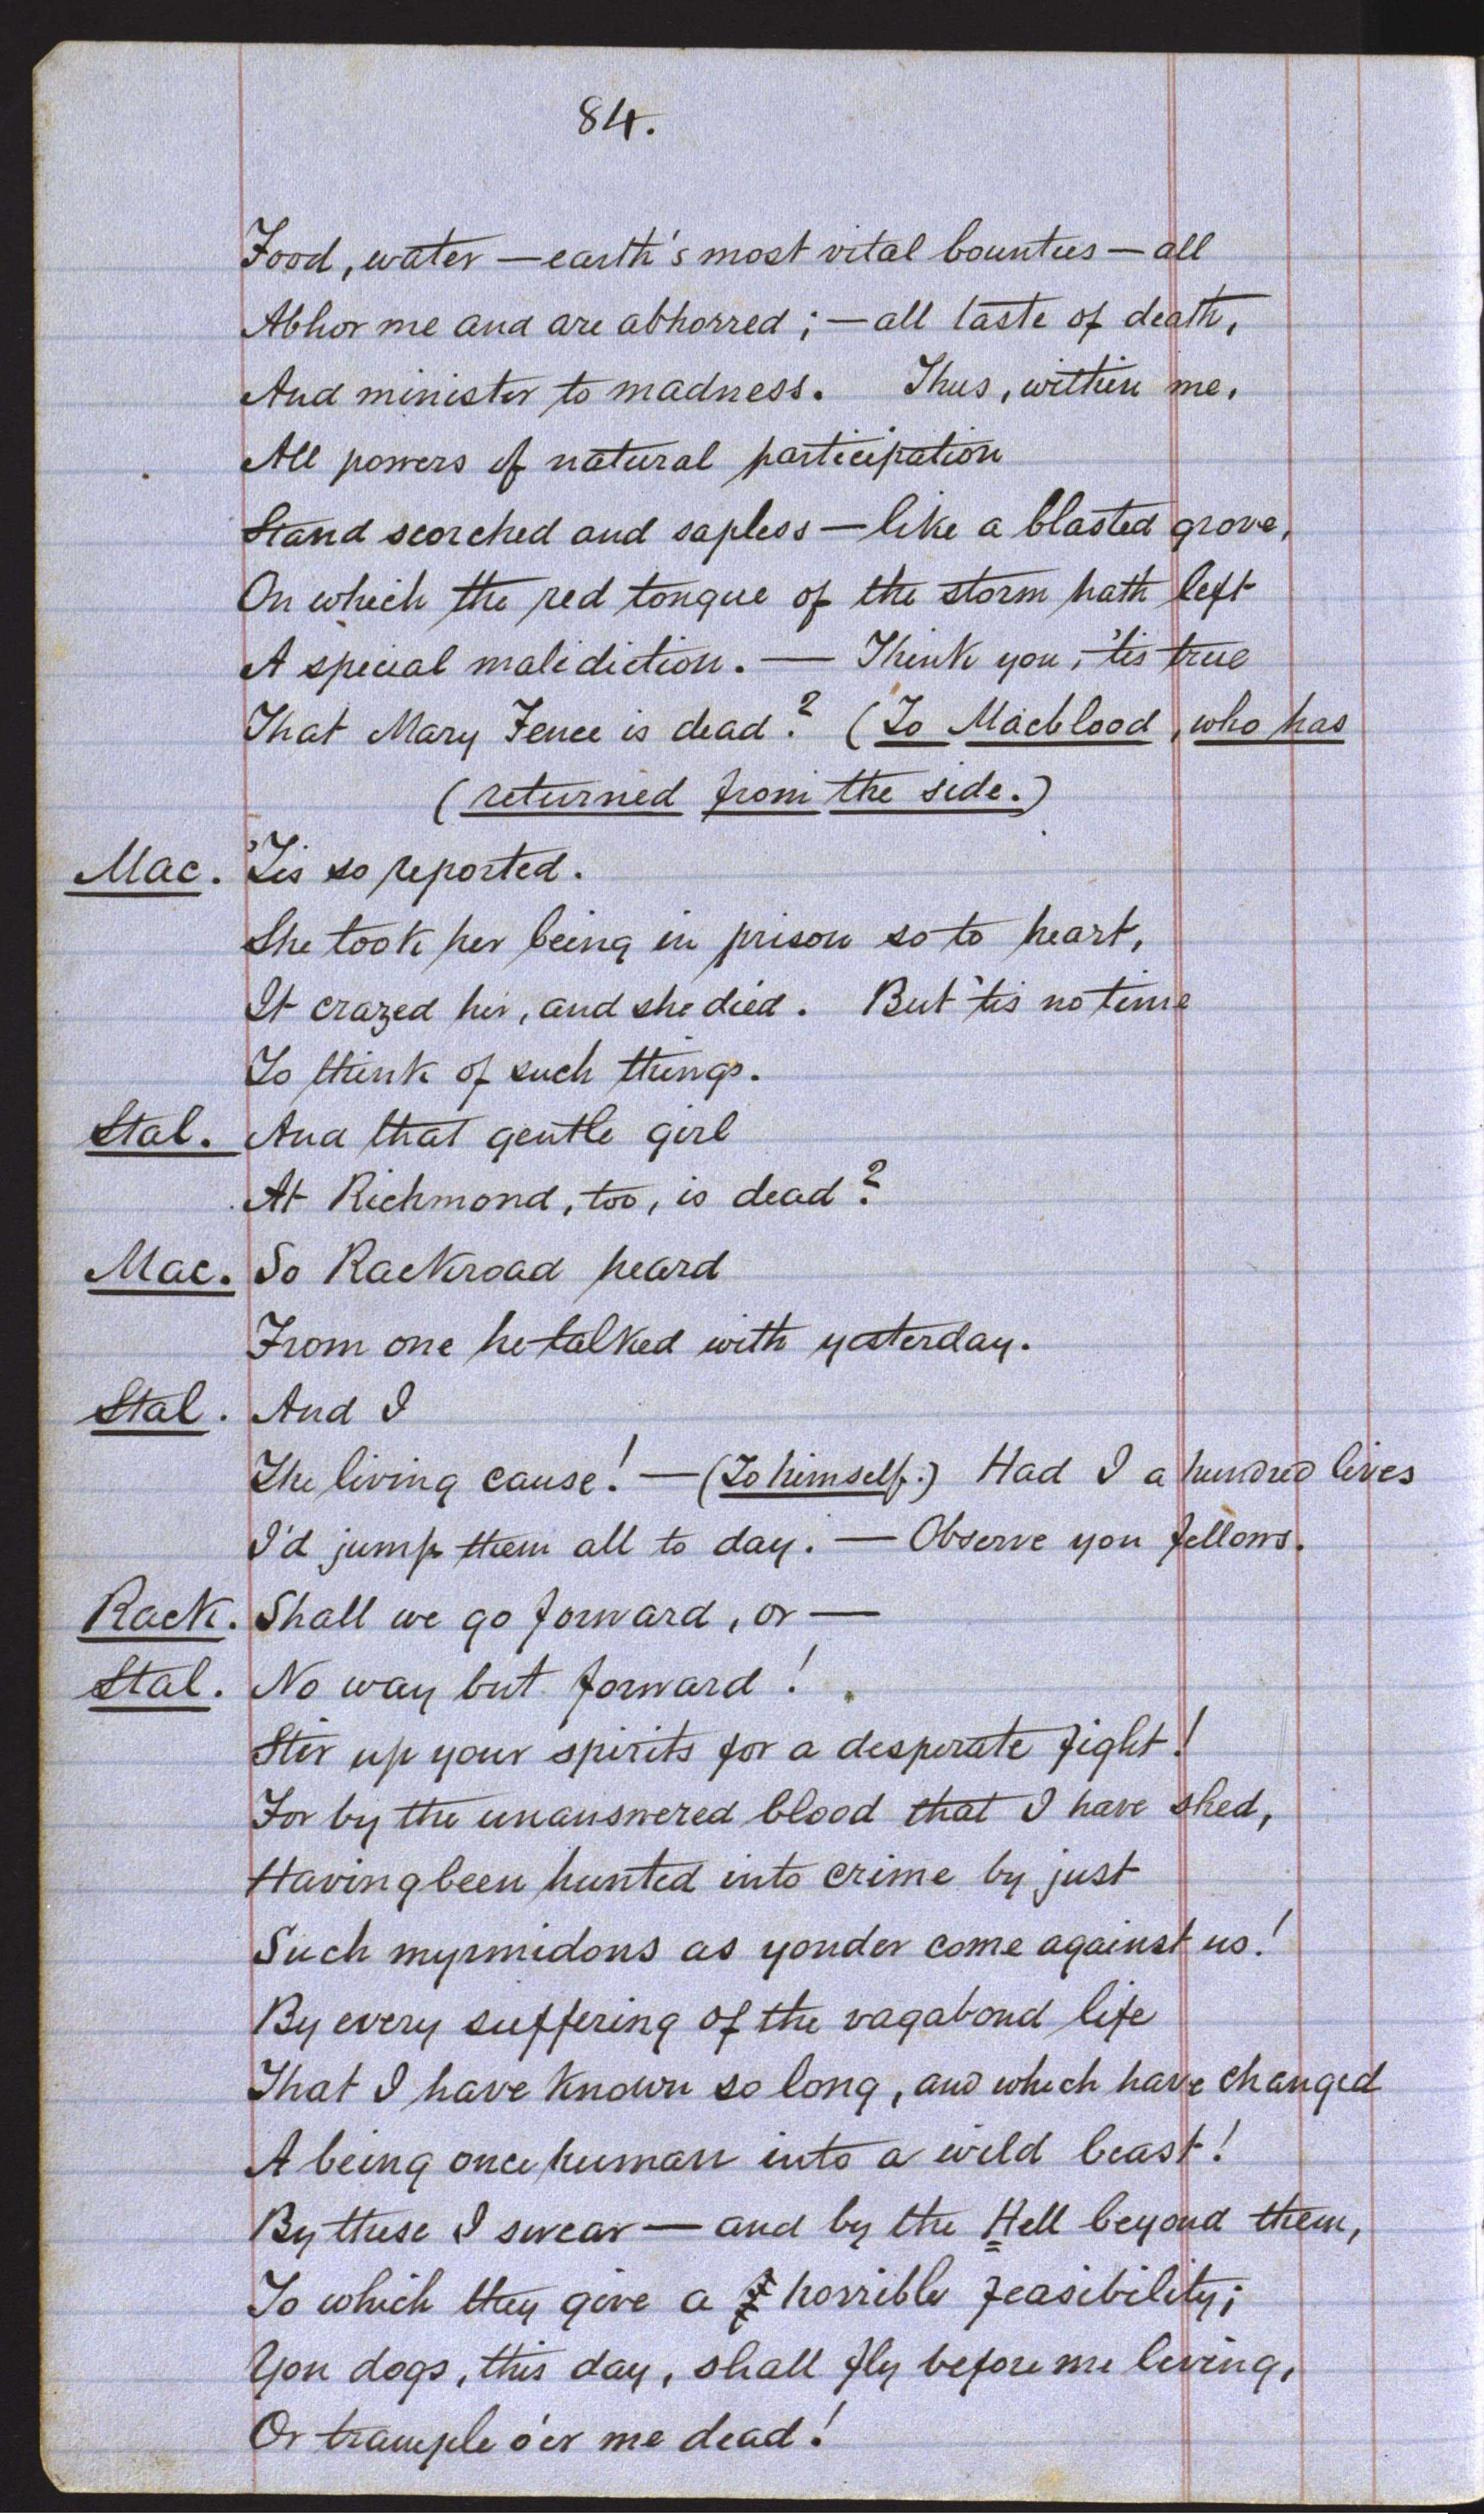 84.
Food, water — earth's most vital bounties — all
Abhor me and are abhorred; — all taste of death,
And minister to madness. Thus, within me,
All powers of natural participation
Stand scorched and sapless — like a blasted grove,
On which the red tongue of the storm hath left
A special malediction. — Think you, 'tis true
That Mary Fence is dead? (To Macblood, who has
(returned from the side.)
Mac. 'Tis so reported.
She took her being in prison so to heart,
It crazed her, and she died. But 'tis no time
To think of such things.
Stal. And that gentle girl
At Richmond, too, is dead?
Mac. So Rackroad heard
From one he talked with yesterday.
Stal. And I
The living cause! — (To himself.) Had I a hundred lives
I'd jump them all to day. — Observe yon fellows.
Rack. Shall we go forward, or —
Stal. No way but forward!
Stir up your spirits for a desperate fight!
For by the unanswered blood that I have shed,
Having been hunted into crime by just
Such myrmidons as yonder come against us!
By every suffering of the vagabond life
That I have known so long, and which have changed
A being once human into a wild beast!
By these I swear — and by the Hell beyond them,
To which they give a horrible feasibility;
Yon dogs, this day, shall fly before me living,
Or trample o'er me dead!